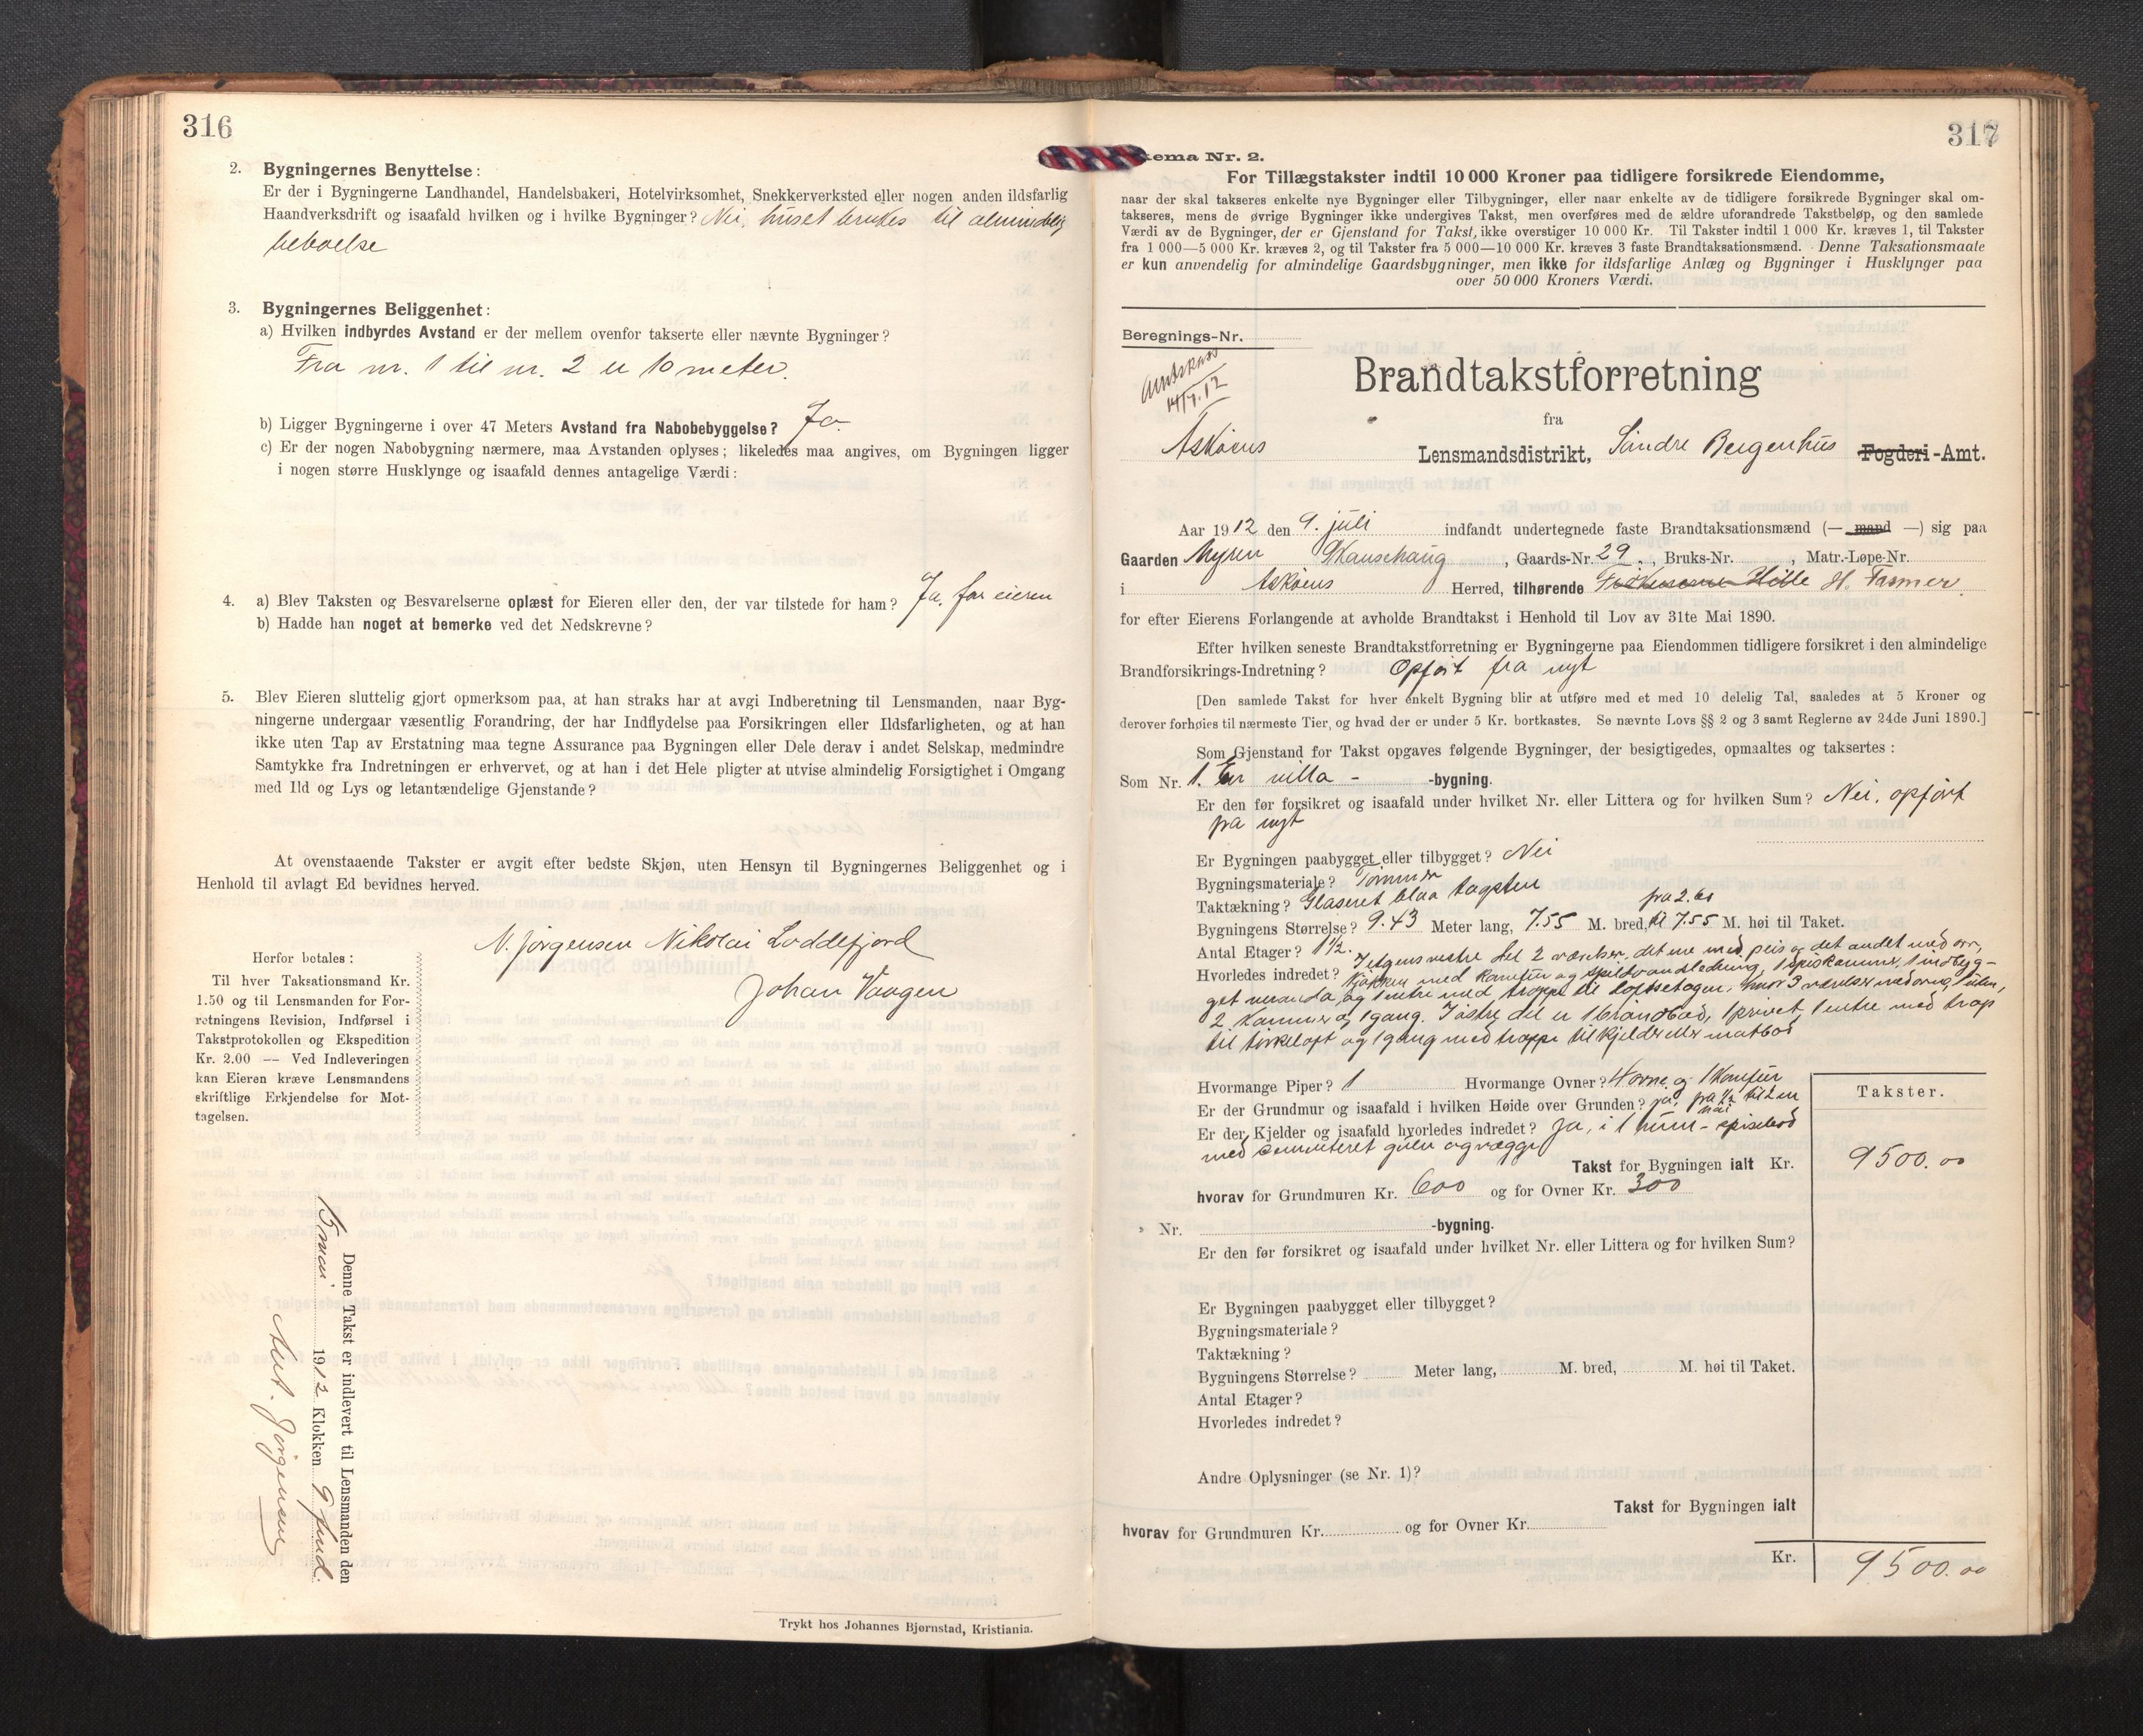 316
2. Bygningernes Benyttelse:
Er der i Bygningerne Landhandel, Handelsbakeri, Hotelvirksomhet, Snekkerverksted eller nogen anden ildsfarlig
Haandverksdrift og isaafald hvilken og i hvilke Bygninger? Nei, huset brukes til almindelig
beboelse
3. Bygningernes Beliggenhet:
a) Hvilken indbyrdes Avstand er der mellem ovenfor takserte eller nævnte Bygninger?
Fra nr. 1 til nr. 2 er 10 meter.
b) Ligger Bygningerne i over 47 Meters Avstand fra Nabobebyggelse? Ja.
c) Er der nogen Nabobygning nærmere, maa Avstanden oplyses; likeledes maa angives, om Bygningen ligger
i nogen større Husklynge og isaafald dennes antagelige Værdi:
4. a) Blev Taksten og Besvarelserne oplæst for Eieren eller den, der var tilstede for ham? Ja, for eieren
b) Hadde han noget at bemerke ved det Nedskrevne?
5. Blev Eieren sluttelig gjort opmerksom paa, at han straks har at avgi Indberetning til Lensmanden, naar Byg-
ningerne undergaar væsentlig Forandring, der har Indflydelse paa Forsikringen eller Ildsfarligheten, og at han
ikke uten Tap av Erstatning maa tegne Assurance paa Bygningen eller Dele derav i andet Selskap, medmindre
Samtykke fra Indretningen er erhvervet, og at han i det Hele pligter at utvise almindelig Forsigtighet i Omgang
med Ild og Lys og letantændelige Gjenstande?
At ovenstaaende Takster er avgit efter bedste Skjøn, uten Hensyn til Bygningernes Beliggenhet og i
Henhold til avlagt Ed bevidnes herved.
N. Jørgensen Nikolai Loddefjord
Johan Vaagen
Herfor betales:
Til hver Taksationsmand Kr.
1.50 og til Lensmanden for For-
retningens Revision, Indførsel i
Takstprotokollen og Ekspedition
Kr. 2.00 — Ved Indleveringen
kan Eieren kræve Lensmandens
skriftlige Erkjendelse for Mot-
tagelsen.
Denne Takst er indlevert til Lensmanden den
1912 Klokken 9 fmd.
Jørgensen
Trykt hos Johannes Bjørnstad, Kristiania.
317
ema Nr. 2.
For Tillægstakster indtil 10 000 Kroner paa tidligere forsikrede Eiendomme,
naar der skal takseres enkelte nye Bygninger eller Tilbygninger, eller naar enkelte av de tidligere forsikrede Bygninger skal om-
takseres, mens de øvrige Bygninger ikke undergives Takst, men overføres med de ældre uforandrede Takstbeløp, og den samlede
Værdi av de Bygninger, der er Gjenstand for Takst, ikke overstiger 10 000 Kr. Til Takster indtil 1 000 Kr. kræves 1, til Takster
fra 1 000—5 000 Kr. kræves 2, og til Takster fra 5 000—10 000 Kr. kræves 3 faste Brandtaksationsmænd. Denne Taksationsmaate
er kun anvendelig for almindelige Gaardsbygninger, men ikke for ildsfarlige Anlæg og Bygninger i Husklynger paa
over 50 000 Kroners Værdi.
Beregnings-Nr.
Brandtakstforretning
fra
Askøens Lensmandsdistrikt, Søndre Bergenhus Fogderi-Amt.
Aar 1912 den 9. juli indfandt undertegnede faste Brandtaksationsmænd (— mand —) sig paa
Gaarden Myren , Gaards-Nr. 29, Bruks-Nr. , Matr.-Løpe-Nr.
i Askøens Herred, tilhørende H. Fasmer
for efter Eierens Forlangende at avholde Brandtakst i Henhold til Lov av 31te Mai 1890.
Efter hvilken seneste Brandtakstforretning er Bygningerne paa Eiendommen tidligere forsikret i den almindelige
Brandforsikrings-Indretning? Opført fra nyt
[Den samlede Takst for hver enkelt Bygning blir at utføre med et med 10 delelig Tal, saaledes at 5 Kroner og
derover forhøies til nærmeste Tier, og hvad der er under 5 Kr. bortkastes. Se nævnte Lovs §§ 2 og 3 samt Reglerne av 24de Juni 1890.]
Som Gjenstand for Takst opgaves følgende Bygninger, der besigtigedes, opmaaltes og taksertes:
Som Nr. 1. En villa - -bygning.
Er den før forsikret og isaafald under hvilket Nr. eller Littera og for hvilken Sum? Nei, opført
fra nyt
Er Bygningen paabygget eller tilbygget? Nei
Bygningsmateriale? Tømmer
Taktækning? Glaseret blaa tagsten
Bygningens Størrelse? 9.43 Meter lang, 7.55 M. bred, fra 2.60 til 7.55 M. høi til Taket.
Antal Etager? 1½.
Hvorledes indredet? I etgens vestre del 2 værelser, det ene med peis og det andet med ovn,
kjøkken med komfur og spildvandsledning, 1 spiskammer, 1 indbyg-
get veranda og 1 entre med trappe til loftsetagen, hvor 3 værelser med ovn, 1 uten,
2 kammer og 1 gang. I østre del er 1 brandbod, 1 privet, 1 entre med trap
til tørkeloft og 1 gang med trappe til kjelder eller matbod
Hvormange Piper? 1 Hvormange Ovner? 4 ovne og 1 komfur
Er der Grundmur og isaafald i hvilken Høide over Grunden? Ja, fra ½ til 2 m
Er der Kjelder og isaafald hvorledes indredet? Ja, i 1 rum - spisebod
med cementeret gulv og vægge
Takster.
Takst for Bygningen ialt Kr. 9500.00
hvorav for Grundmuren Kr. 600 og for Ovner Kr. 300
Nr. -bygning.
Er den før forsikret og isaafald under hvilket Nr. eller Littera og for hvilken Sum?
Er Bygningen paabygget eller tilbygget?
Bygningsmateriale?
Taktækning?
Bygningens Størrelse? Meter lang, M. bred, M. høi til Taket.
Antal Etager?
Hvorledes indredet?
Andre Oplysninger (se Nr. 1)?
Takst for Bygningen ialt
hvorav for Grundmuren Kr. og for Ovner Kr.
Kr. 9500.00